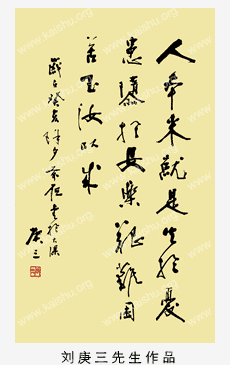 人本来就是生於憂
患於安樂艱難困
苦玉汝以成
歲在癸亥除夕書於
庚三
刘庚三先生作品
www.kaishu.org